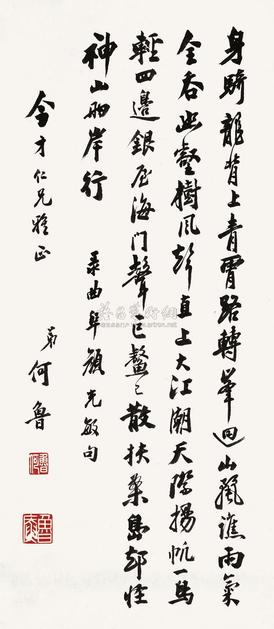 身騎龍背上青霄路轉峯迴出麗譙雨氣
全吞幽壑樹風聲直上大江潮天際揚帆一馬
輕四邊銀屋海門聲巨鰲忽散扶桑島却怪
神山兩岸行
录曲阜顏光敏句
令才仁兄雅正
弟何魯